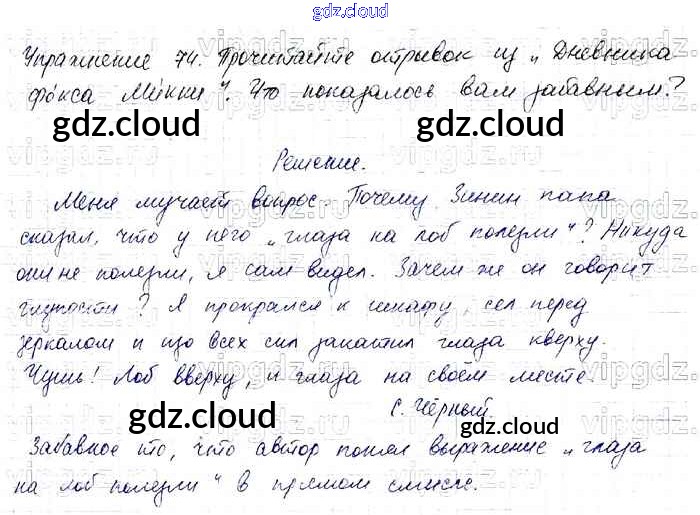 gdz.cloud
Упражнение 74. Прочитайте отрывок из „Дневника
фо́кса Ми́кки". Что показалось вам забавным?
gdz.cloud gdz.cloud
Решение.
Меня мучает вопрос. Почему Зинин папа
сказал, что у него „глаза на лоб полезли"? Никуда
они не полезли, я сам видел. Зачем же он говорит
глупости? Я прокрался к шкафу, сел перед
зеркалом и изо всех сил закатил глаза кверху.
Чушь! Лоб вверху, и глаза на своём месте.
С. Чёрный.
gdz.cloud gdz.cloud
Забавное то, что автор понял выражение „глаза
на лоб полезли" в прямом смысле.